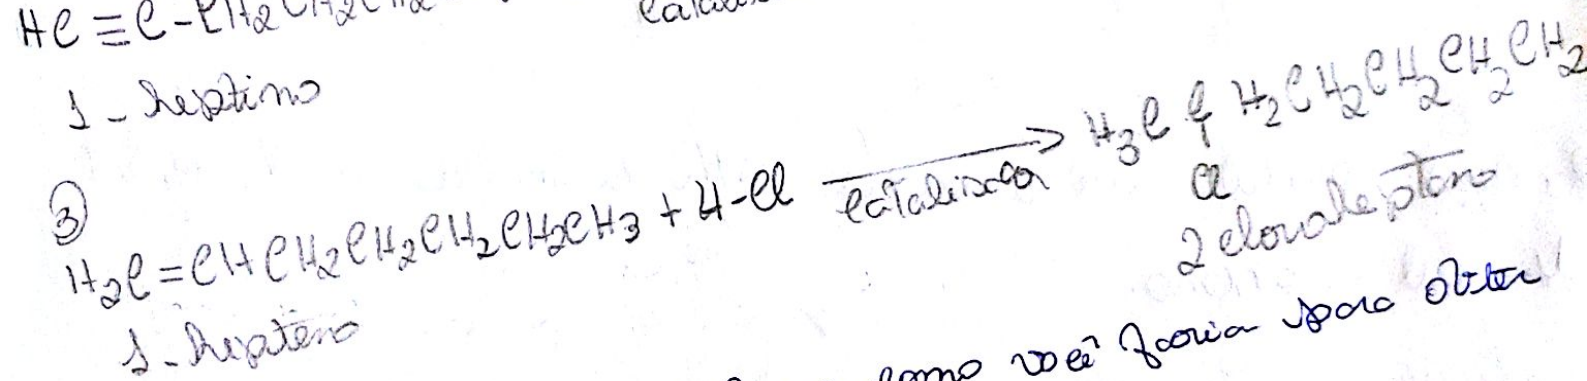 HC≡C-CH2CH2CH2
1-heptino
③
H2C=CHCH2CH2CH2CH2CH3 + H-Cl catalisador → H3C C H2CH2CH2CH2CH2
Cl
1-hepteno
2 cloroheptano
como você faria para obter